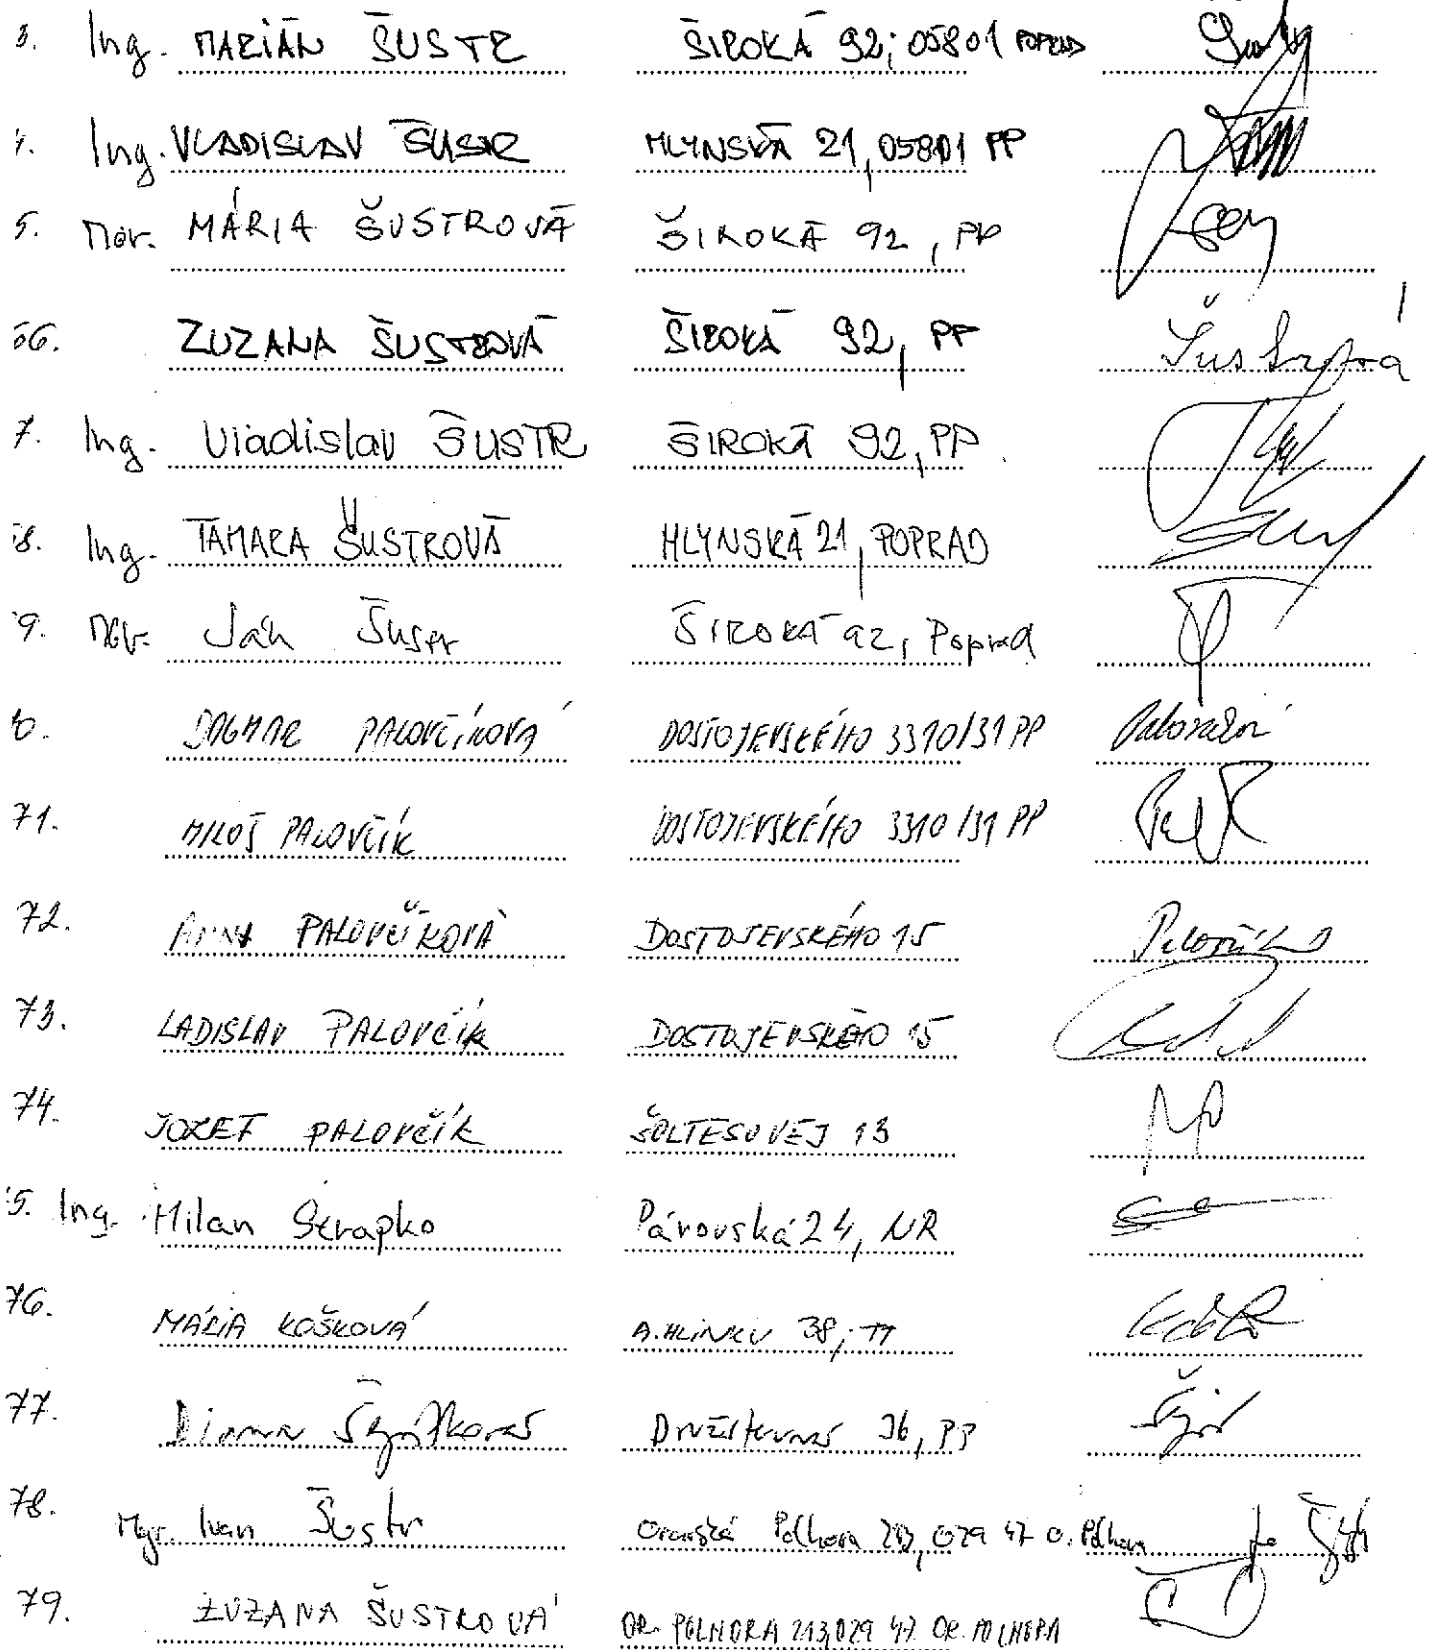 3. Ing. MARIÁN ŠUSTR ŠIROKÁ 92; 05801 POPRAD
Ing. VLADISLAV ŠUSTR MLYNSKÁ 21, 05801 PP
5. MÁRIA ŠUSTROVÁ ŠIROKÁ 92, PP
66. ZUZANA ŠUSTROVÁ ŠIROKÁ 92, PP Šustrová
7. Ing. Vladislav ŠUSTR ŠIROKÁ 92, PP
8. Ing. TAMARA ŠUSTROVÁ MLYNSKÁ 21, POPRAD
9. Ján Šustr ŠIROKÁ 92, Poprad
0. DAGMAR PALOVČÍKOVÁ DOSTOJEVSKÉHO 3310/31 PP
71. MILOŠ PALOVČÍK DOSTOJEVSKÉHO 3310/31 PP
72. ANNA PALOVČÍKOVÁ DOSTOJEVSKÉHO 15
73. LADISLAV PALOVČÍK DOSTOJEVSKÉHO 15
74. JOZEF PALOVČÍK ŠOLTESOVEJ 13
5. Ing. Milan Strapko Párovská 24, NR
76. MÁRIA KOŠKOVÁ A. HLINKU 38, TT
77. Diana 36, PP
78. Mgr. Ivan Šustr Oravská Polhora 213, 029 47 O. Polhora
79. ZUZANA ŠUSTROVÁ OR. POLHORA 213, 029 47 OR. POLHORA